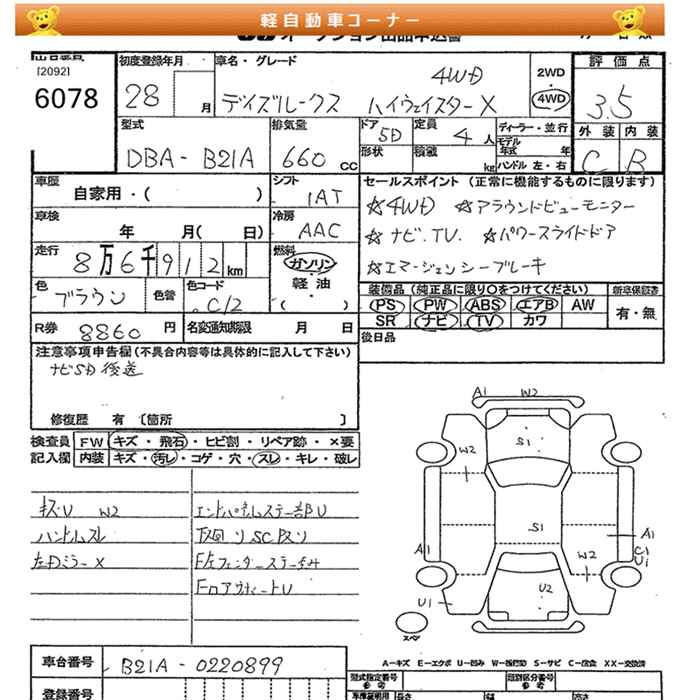 軽自動車コーナー
[2092]
6078
初度登録年月
28
月
車名・グレード
4WD
デイズルークス ハイウェイスターX
2WD
4WD
評価点
3.5
外装 内装
C B
型式
DBA-B21A
排気量
660 cc
ドア 5D
定員 4 人
形状
積載 kg
ディーラー・並行
モデル年式 年
ハンドル 左・右
車歴
自家用・( )
シフト
IAT
車検
年 月( 日)
冷房
AAC
走行
8万6千912km
燃料
ガソリン・軽油・( )
色
ブラウン
色替
色コード
C12
R券 8860 円
名変通知期限 月 日
セールスポイント(正常に機能するものに限ります)
☆4WD ☆アラウンドビューモニター
☆ナビ.TV. ☆パワースライドドア
☆エマージェンシーブレーキ
装備品(純正品に限り○をつけてください)
新車保証書
PS PW ABS エアB AW
SR ナビ TV カワ
有・無
後日品
注意事項申告欄(不具合内容等は具体的に記入して下さい)
ナビSD後送
修復歴 有 〔箇所 〕
検査員記入欄
FW キズ・飛石・ヒビ割・リペア跡・×要
内装 キズ・汚レ・コゲ・穴・スレ・キレ・破レ
キズU W2
ハンドルスレ
左Dミラー X
エンドパネルステー部U
下廻りSCサビ
A1 W2
S1
W2
S1
A1
A1
C1
U1
W2
U2
U1
スペア
A-キズ E-エクボ U-凹み W-補修跡 S-サビ C-腐食 XX-交換済
車台番号
B21A-0220899
登録番号
型式指定番号
類別区分番号
参考
長さ
幅
高さ